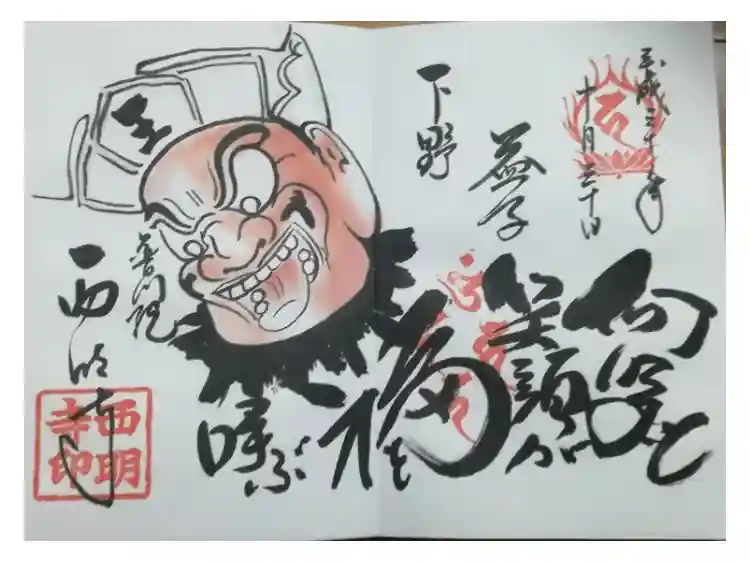 平成三十年
十月三十日
下野
益子
笑顔が
福を
呼ぶ
王
普門院
西明寺
西明
寺印